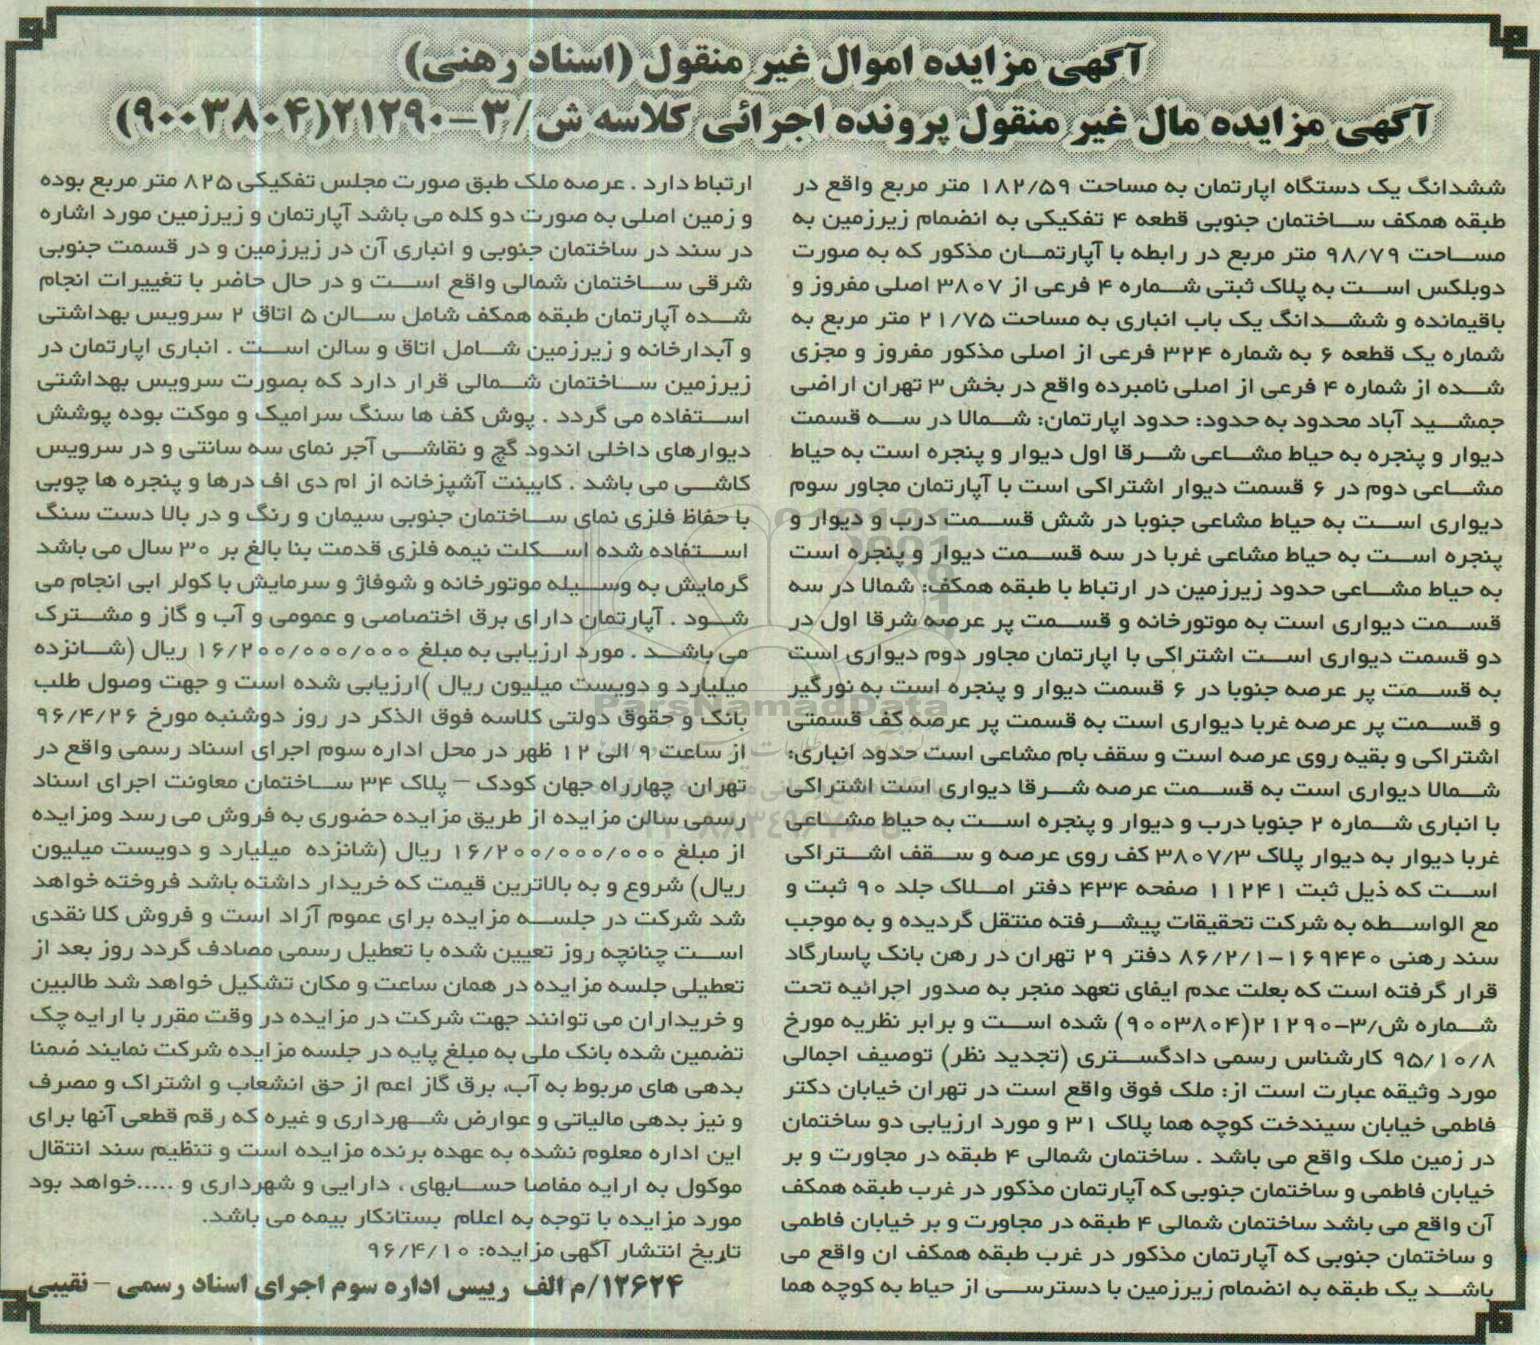 آگهی مزایده اموال غیر منقول (اسناد رهنی)
آگهی مزایده مال غیر منقول پرونده اجرائی کلاسه ش/۳-۲۱۲۹۰(۹۰۰۳۸۰۴)
ششدانگ یک دستگاه اپارتمان به مساحت ۱۸۲/۵۹ متر مربع واقع در
طبقه همکف ساختمان جنوبی قطعه ۴ تفکیکی به انضمام زیرزمین به
مساحت ۹۸/۷۹ متر مربع در رابطه با آپارتمان مذکور که به صورت
دوبلکس است به پلاک ثبتی شماره ۴ فرعی از ۳۸۰۷ اصلی مفروز و
باقیمانده و ششدانگ یک باب انباری به مساحت ۲۱/۷۵ متر مربع به
شماره یک قطعه ۶ به شماره ۳۲۴ فرعی از اصلی مذکور مفروز و مجزی
شده از شماره ۴ فرعی از اصلی نامبرده واقع در بخش ۳ تهران اراضی
جمشید آباد محدود به حدود: حدود اپارتمان: شمالا در سه قسمت
دیوار و پنجره به حیاط مشاعی شرقا اول دیوار و پنجره است به حیاط
مشاعی دوم در ۶ قسمت دیوار اشتراکی است با آپارتمان مجاور سوم
دیواری است به حیاط مشاعی جنوبا در شش قسمت درب و دیوار و
پنجره است به حیاط مشاعی غربا در سه قسمت دیوار و پنجره است
به حیاط مشاعی حدود زیرزمین در ارتباط با طبقه همکف: شمالا در سه
قسمت دیواری است به موتورخانه و قسمت پر عرصه شرقا اول در
دو قسمت دیواری است اشتراکی با اپارتمان مجاور دوم دیواری است
به قسمت پر عرصه جنوبا در ۶ قسمت دیوار و پنجره است به نورگیر
و قسمت پر عرصه غربا دیواری است به قسمت پر عرصه کف قسمتی
اشتراکی و بقیه روی عرصه است و سقف بام مشاعی است حدود انباری:
شمالا دیواری است به قسمت عرصه شرقا دیواری است اشتراکی
با انباری شماره ۲ جنوبا درب و دیوار و پنجره است به حیاط مشاعی
غربا دیوار به دیوار پلاک ۳۸۰۷/۳ کف روی عرصه و سقف اشتراکی
است که ذیل ثبت ۱۱۲۴۱ صفحه ۴۳۴ دفتر املاک جلد ۹۰ ثبت و
مع الواسطه به شرکت تحقیقات پیشرفته منتقل گردیده و به موجب
سند رهنی ۱۶۹۴۴۰-۸۶/۲/۱ دفتر ۲۹ تهران در رهن بانک پاسارگاد
قرار گرفته است که بعلت عدم ایفای تعهد منجر به صدور اجرائیه تحت
شماره ش/۳-۲۱۲۹۰(۹۰۰۳۸۰۴) شده است و برابر نظریه مورخ
۹۵/۱۰/۸ کارشناس رسمی دادگستری (تجدید نظر) توصیف اجمالی
مورد وثیقه عبارت است از: ملک فوق واقع است در تهران خیابان دکتر
فاطمی خیابان سیندخت کوچه هما پلاک ۳۱ و مورد ارزیابی دو ساختمان
در زمین ملک واقع می باشد . ساختمان شمالی ۴ طبقه در مجاورت و بر
خیابان فاطمی و ساختمان جنوبی که آپارتمان مذکور در غرب طبقه همکف
آن واقع می باشد ساختمان شمالی ۴ طبقه در مجاورت و بر خیابان فاطمی
و ساختمان جنوبی که آپارتمان مذکور در غرب طبقه همکف ان واقع می
باشد یک طبقه به انضمام زیرزمین با دسترسی از حیاط به کوچه هما
ارتباط دارد . عرصه ملک طبق صورت مجلس تفکیکی ۸۲۵ متر مربع بوده
و زمین اصلی به صورت دو کله می باشد آپارتمان و زیرزمین مورد اشاره
در سند در ساختمان جنوبی و انباری آن در زیرزمین و در قسمت جنوبی
شرقی ساختمان شمالی واقع است و در حال حاضر با تغییرات انجام
شده آپارتمان طبقه همکف شامل سالن ۵ اتاق ۲ سرویس بهداشتی
و آبدارخانه و زیرزمین شامل اتاق و سالن است . انباری اپارتمان در
زیرزمین ساختمان شمالی قرار دارد که بصورت سرویس بهداشتی
استفاده می گردد . پوش کف ها سنگ سرامیک و موکت بوده پوشش
دیوارهای داخلی اندود گچ و نقاشی آجر نمای سه سانتی و در سرویس
کاشی می باشد . کابینت آشپزخانه از ام دی اف درها و پنجره ها چوبی
با حفاظ فلزی نمای ساختمان جنوبی سیمان و رنگ و در بالا دست سنگ
استفاده شده اسکلت نیمه فلزی قدمت بنا بالغ بر ۳۰ سال می باشد
گرمایش به وسیله موتورخانه و شوفاژ و سرمایش با کولر ابی انجام می
شود . آپارتمان دارای برق اختصاصی و عمومی و آب و گاز و مشترک
می باشد . مورد ارزیابی به مبلغ ۱۶/۲۰۰/۰۰۰/۰۰۰ ریال (شانزده
میلیارد و دویست میلیون ریال )ارزیابی شده است و جهت وصول طلب
بانک و حقوق دولتی کلاسه فوق الذکر در روز دوشنبه مورخ ۹۶/۴/۲۶
از ساعت ۹ الی ۱۲ ظهر در محل اداره سوم اجرای اسناد رسمی واقع در
تهران چهارراه جهان کودک – پلاک ۳۴ ساختمان معاونت اجرای اسناد
رسمی سالن مزایده از طریق مزایده حضوری به فروش می رسد ومزایده
از مبلغ ۱۶/۲۰۰/۰۰۰/۰۰۰ ریال (شانزده میلیارد و دویست میلیون
ریال) شروع و به بالاترین قیمت که خریدار داشته باشد فروخته خواهد
شد شرکت در جلسه مزایده برای عموم آزاد است و فروش کلا نقدی
است چنانچه روز تعیین شده با تعطیل رسمی مصادف گردد روز بعد از
تعطیلی جلسه مزایده در همان ساعت و مکان تشکیل خواهد شد طالبین
و خریداران می توانند جهت شرکت در مزایده در وقت مقرر با ارایه چک
تضمین شده بانک ملی به مبلغ پایه در جلسه مزایده شرکت نمایند ضمنا
بدهی های مربوط به آب، برق گاز اعم از حق انشعاب و اشتراک و مصرف
و نیز بدهی مالیاتی و عوارض شهرداری و غیره که رقم قطعی آنها برای
این اداره معلوم نشده به عهده برنده مزایده است و تنظیم سند انتقال
موکول به ارایه مفاصا حسابهای ، دارایی و شهرداری و .....خواهد بود
مورد مزایده با توجه به اعلام بستانکار بیمه می باشد.
تاریخ انتشار آگهی مزایده: ۹۶/۴/۱۰
۱۲۶۲۴/م الف رییس اداره سوم اجرای اسناد رسمی – نقیبی
ParsNamadData